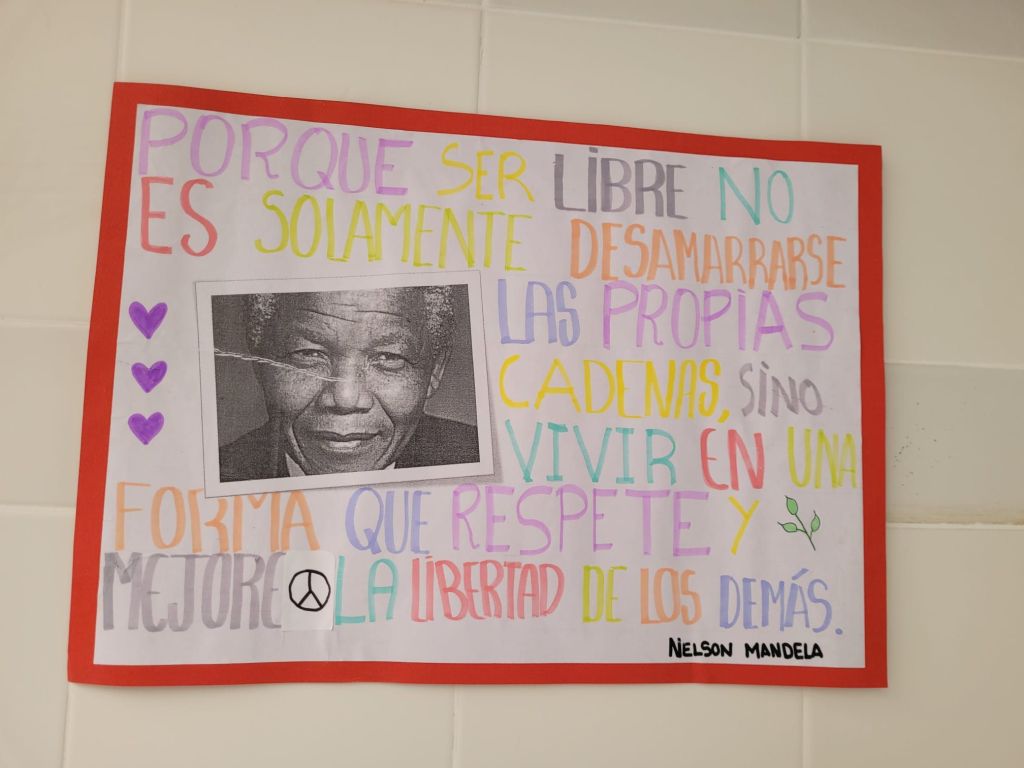 PORQUE SER LIBRE NO
ES SOLAMENTE DESAMARRARSE
LAS PROPIAS
CADENAS, SINO
VIVIR EN UNA
FORMA QUE RESPETE Y
MEJORE LA LIBERTAD DE LOS DEMÁS.
NELSON MANDELA